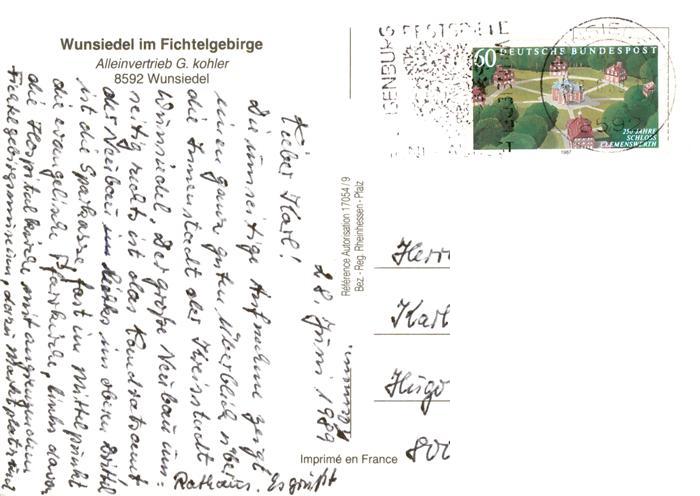 Wunsiedel im Fichtelgebirge
Alleinvertrieb G. kohler
8592 Wunsiedel
28. Juni 1989
Lieber Karl!
Die umseitige Aufnahme zeigt
einen ganz guten Überblick über
die Innenstadt der Kreisstadt
Wunsiedel. Der große Neubau un=
seitig rechts ist das Landratsamt
der Neubau im links im obern Drittel
ist die Sparkasse, fast im Mittelpunkt
die evangelische Pfarrkirche, links davon
die Hospitalkirche mit angrenzendem
Fichtelgebirgsmuseum, dazu Marktplatz und
Rathaus. Es grüßt
Référence Autorisation 17054/9
Bez - Reg. Rheinhessen - Pfalz
Imprimé en France
GENBURG FESTSPIELE
8592
60 DEUTSCHE BUNDESPOST
250 JAHRE
SCHLOSS
CLEMENSWERTH
1987
Herrn
Karl
Hugo
800